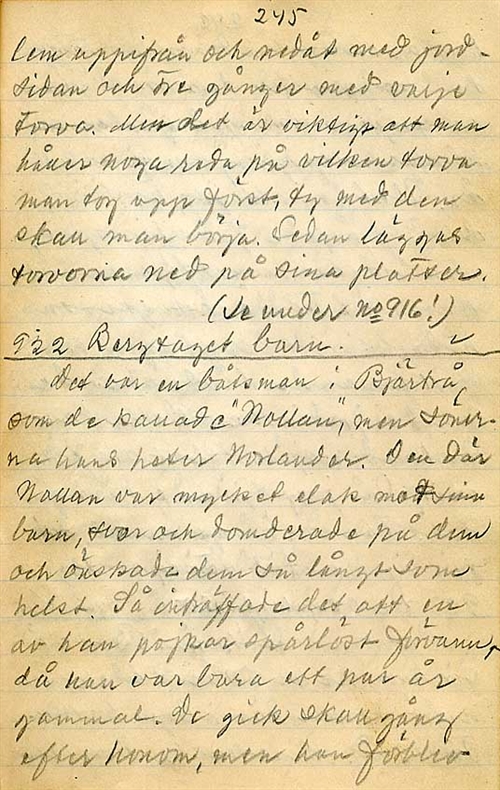 245
lem uppifrån och nedåt med jord-
sidan och tre gånger med varje
torva. Men det är viktigt att man
håller noga reda på vilken torva
man tog upp först, ty med den
skall man börja. Sedan läggas
torvorna ned på sina platser.
(Se under No 916!)
922 Bergtaget barn.
Det var en båtsman i Bjärtrå,
som de kallade "Nollan", men söner-
na hans heter Norlander. Den där
Nollan var mycket elak mot sina
barn, svor och domderade på dem
och önskade dem så långt som
helst. Så inträffade det att en
av han pojkar spårlöst försvann,
då han var bara ett par år
gammal. De gick skallgång
efter honom, men han förblev